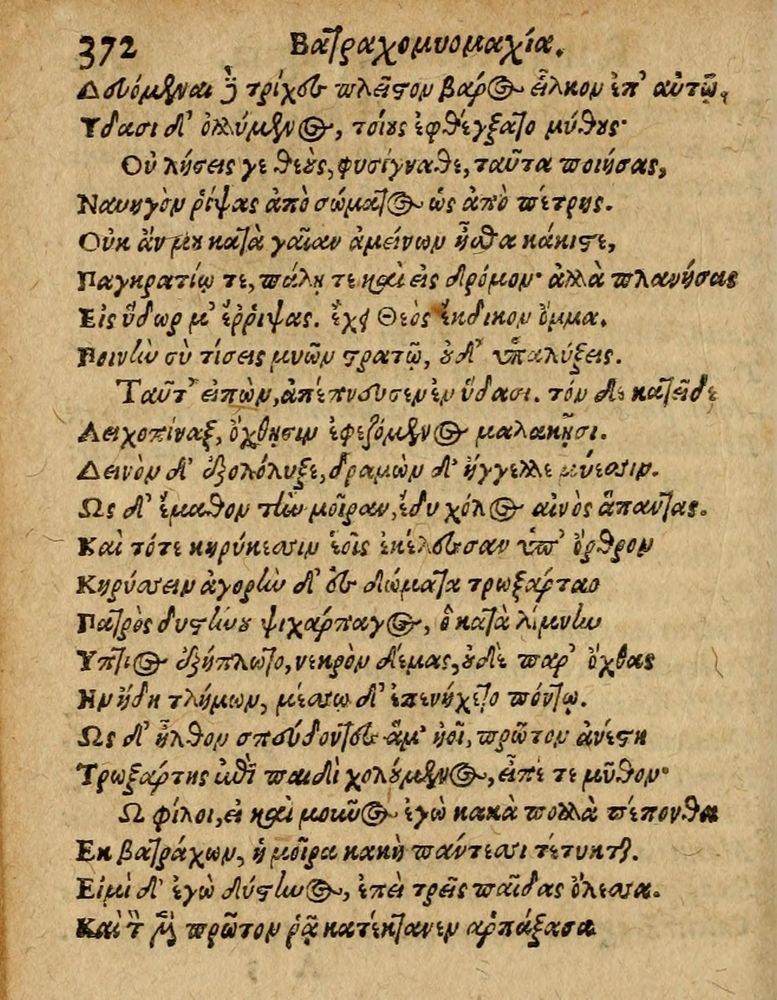 372 Βατραχομυομαχία.
Δευόμεναι δὲ τρίχες πλεῖστον βάρος εἷλκον ἐπ' αὐτῷ,
Ύδασι δ' ὀλλύμενος, τοίους ἐφθέγξατο μύθους·
Οὐ λήσεις γε θεοὺς, φυσίγναθε, ταῦτα ποιήσας,
Ναυηγὸν ῥίψας ἀπὸ σώματος ὡς ἀπὸ πέτρης.
Οὐκ ἄν μου κατὰ γαῖαν ἀμείνων ἦσθα κάκιστε,
Παγκρατίῳ τε, πάλῃ τε καὶ εἰς δρόμον· ἀλλὰ πλανήσας
Εἰς ὕδωρ μ' ἔῤῥιψας. ἔχει Θεὸς ἔκδικον ὄμμα.
Ποινὴν σὺ τίσεις μυῶν στρατῷ, οὐδ' ὑπαλύξεις.
Ταῦτ' εἰπὼν, ἀπέπνευσεν ἐν ὕδασι. τὸν δὲ κατεῖδε
Λειχοπίναξ, ὄχθῃσιν ἐφεζόμενος μαλακῇσι.
Δεινὸν δ' ἐξολόλυξε, δραμὼν δ' ἤγγελλε μύεσσιν.
Ως δ' ἔμαθον τὴν μοῖραν, ἔδυ χόλος αἰνὸς ἅπαντας.
Καὶ τότε κηρύκεσσιν ἑοῖς ἐκέλευσαν ὑπ' ὄρθρον
Κηρύσσειν ἀγορὴν δ' ἐς δώματα τρωξάρταο
Πατρὸς δυστήνου ψιχάρπαγος, ὃ κατὰ λίμνην
Υπτιος ἐξήπλωτο, νεκρὸν δέμας, οὐδὲ παρ' ὄχθας
Ην ἤδη τλήμων, μέσσῳ δ' ἐπενήχετο πόντῳ.
Ως δ' ἦλθον σπεύδοντες ἅμ' ἠοῖ, πρῶτον ἀνέστη
Τρωξάρτης ἐπὶ παιδὶ χολούμενος, εἶπέ τε μῦθον·
Ω φίλοι, εἰ καὶ μοῦνος ἐγὼ κακὰ πολλὰ πέπονθα
Εκ βατράχων, ἡ μοῖρα κακὴ πάντεσσι τέτυκται.
Εἰμὶ δ' ἐγὼ δύστηνος, ἐπεὶ τρεῖς παῖδας ὄλεσσα.
Καὶ τὸν μὲν πρῶτον ῥὰ κατέκτανεν ἁρπάξασα